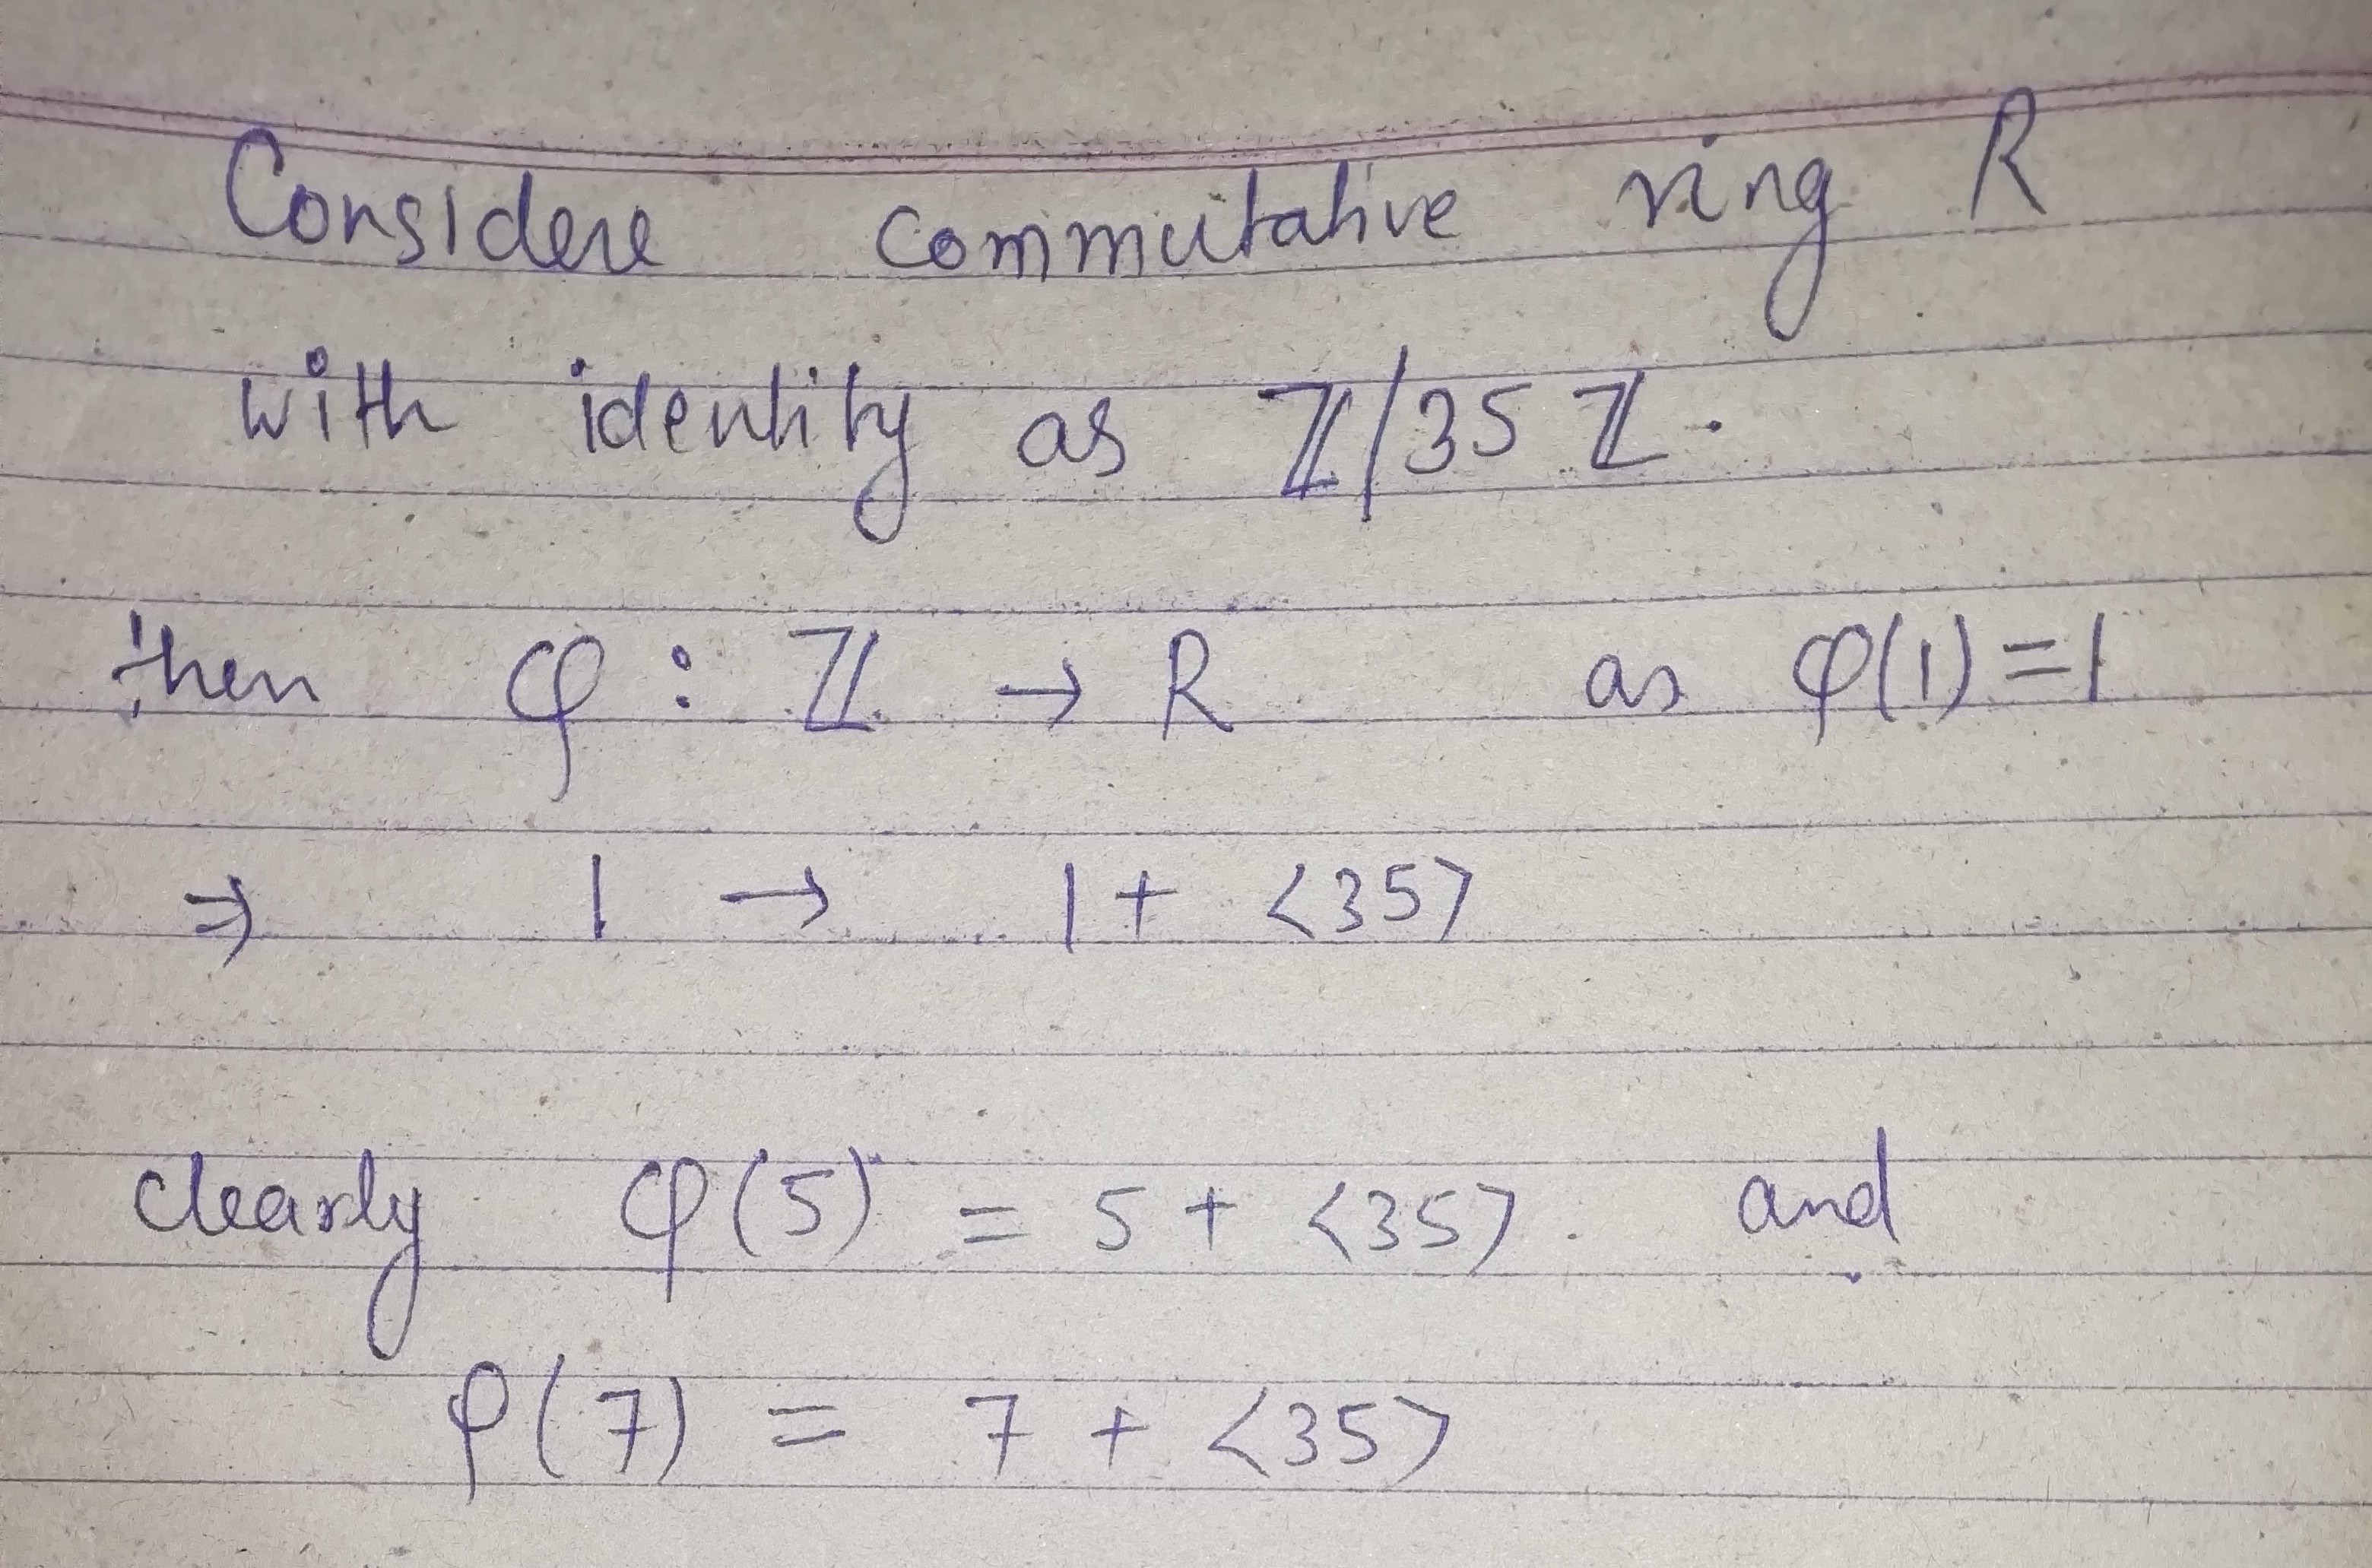 Considere commutative ring R
with identity as ℤ/35ℤ.
then φ : ℤ → R as φ(1)=1
⇒ 1 → 1 + <35>
clearly φ(5) = 5 + <35>. and
φ(7) = 7 + <35>